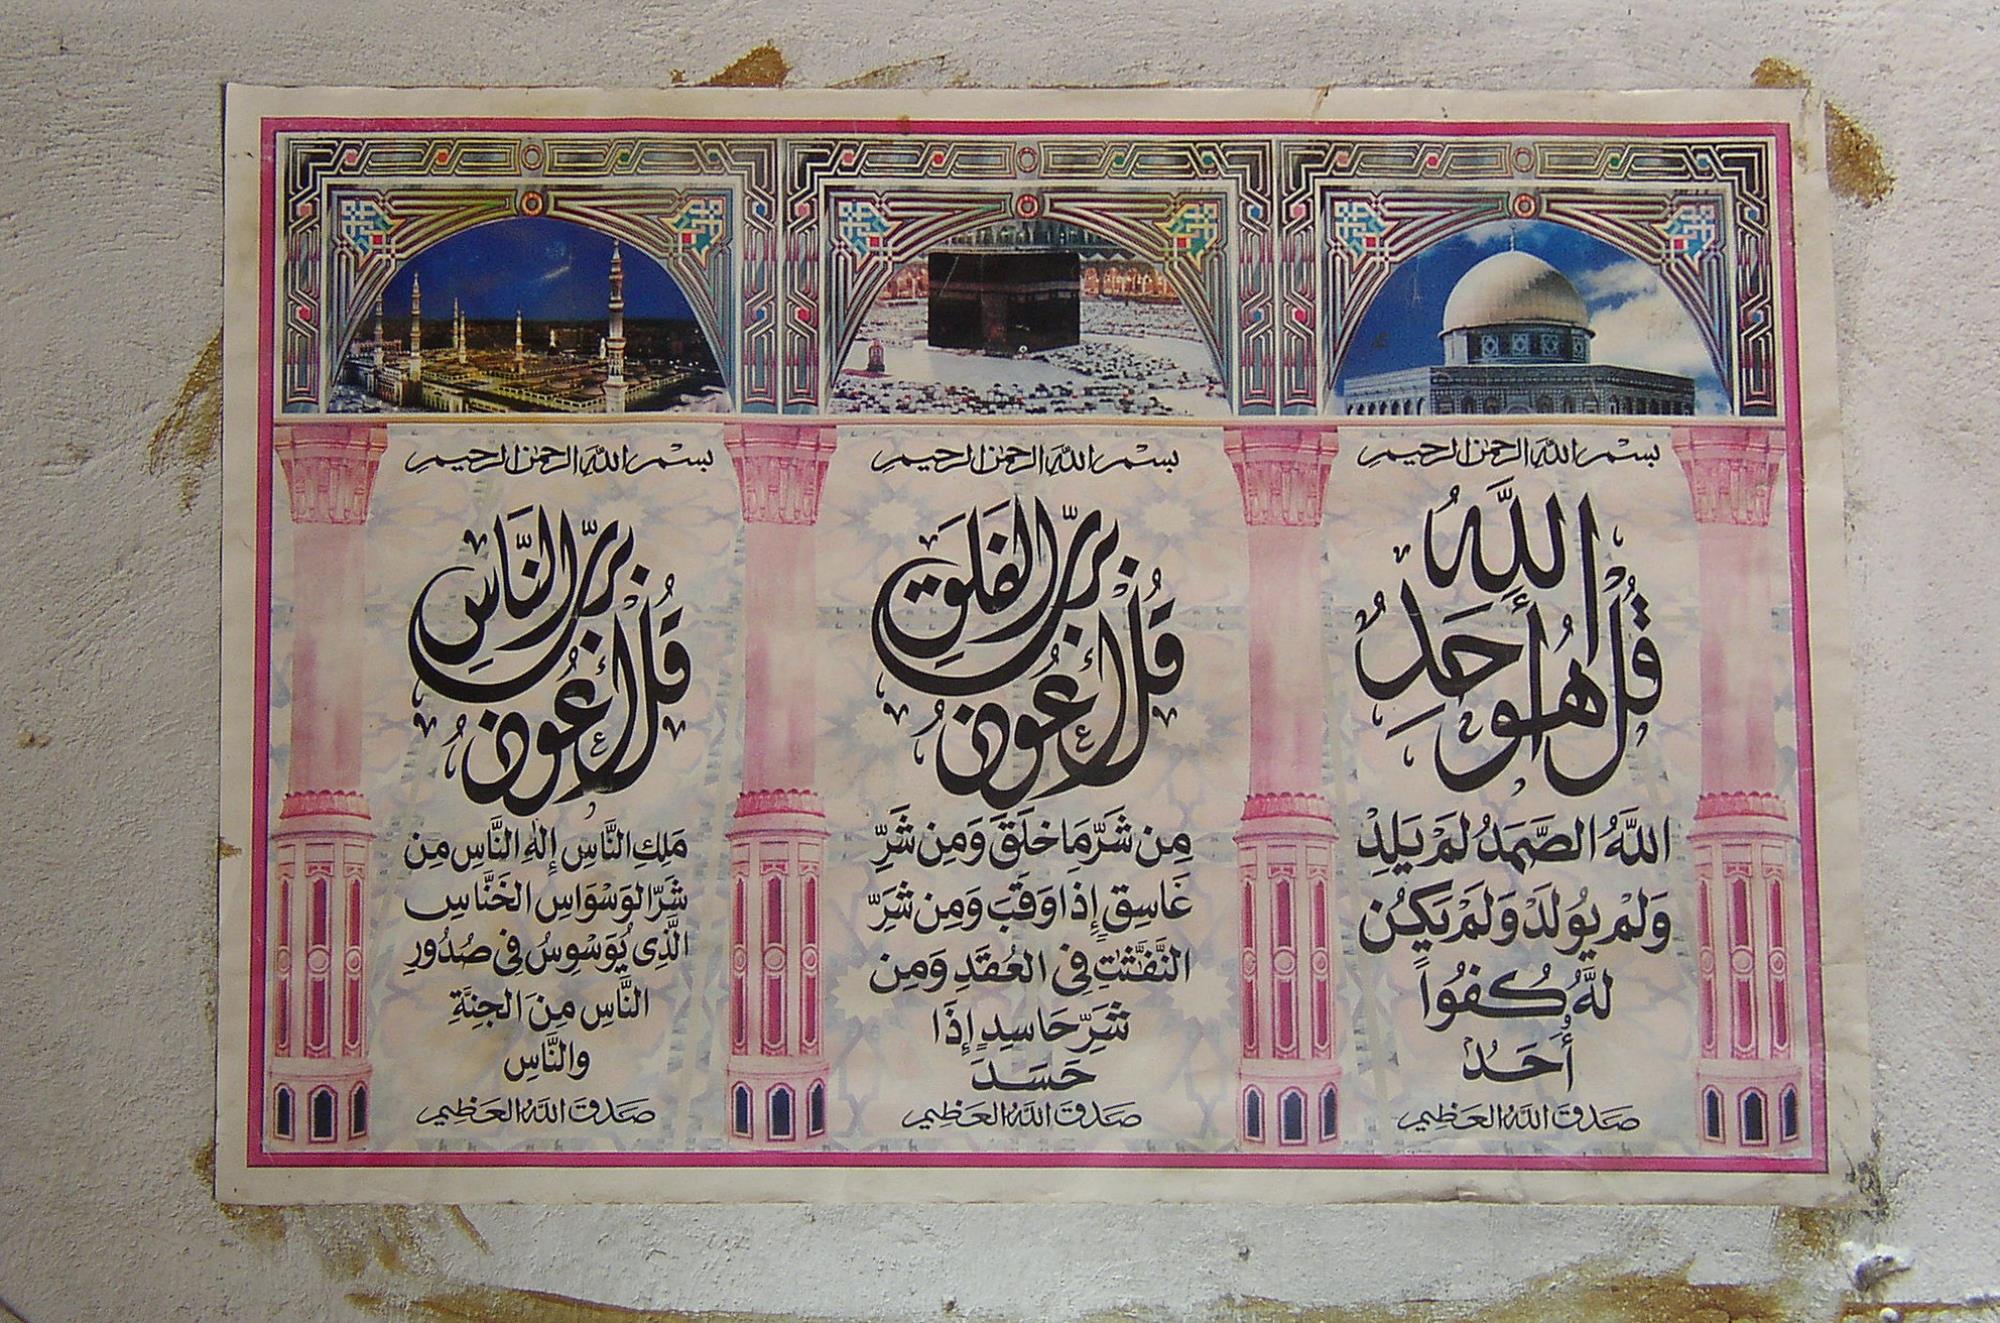 بسم الله الرحمن الرحيم
قُلْ هُوَ اللَّهُ أَحَدٌ
اللَّهُ الصَّمَدُ لَمْ يَلِدْ
وَلَمْ يُولَدْ وَلَمْ يَكُن
لَّهُ كُفُوًا
أَحَدٌ
صدق الله العظيم
بسم الله الرحمن الرحيم
قُلْ أَعُوذُ بِرَبِّ الفَلَقِ
مِن شَرِّ مَا خَلَقَ وَمِن شَرِّ
غَاسِقٍ إِذَا وَقَبَ وَمِن شَرِّ
النَّفَّٰثَٰتِ فِى العُقَدِ وَمِن
شَرِّ حَاسِدٍ إِذَا
حَسَدَ
صدق الله العظيم
بسم الله الرحمن الرحيم
قُلْ أَعُوذُ بِرَبِّ النَّاسِ
مَلِكِ النَّاسِ إِلَٰهِ النَّاسِ مِن
شَرِّ الوَسْوَاسِ الخَنَّاسِ
الَّذِى يُوَسْوِسُ فِى صُدُورِ
النَّاسِ مِنَ الجِنَّةِ
والنَّاسِ
صدق الله العظيم